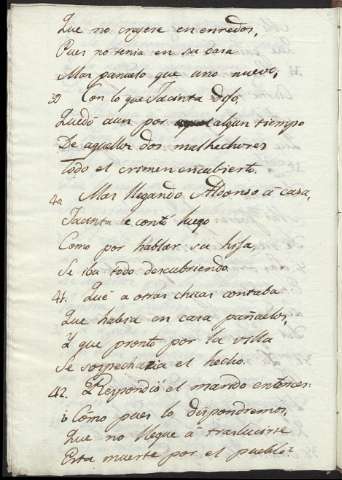 Que no creyese en enredos,
Pues no tenia en su casa
Mas panuelo que uno nuevo,
39 Con lo que Jacinta dijo,
Quedó aun por algun tiempo
De aquellos dos malhechores
Todo el crimen encubierto.
40 Mas llegando Aldonso à casa,
Jacinta le contó luego
Como por hablar su hija
Se iba todo descubriendo.
41. Qué à otras chicas contaba
Que habia en casa pañuelos,
Y que pronto por la villa
Se sospecharia el hecho.
42. Respondió el marido entonces
¿Como pues lo dispondremos,
Que no llegue à traslucirse
Esta muerte por el pueblo?